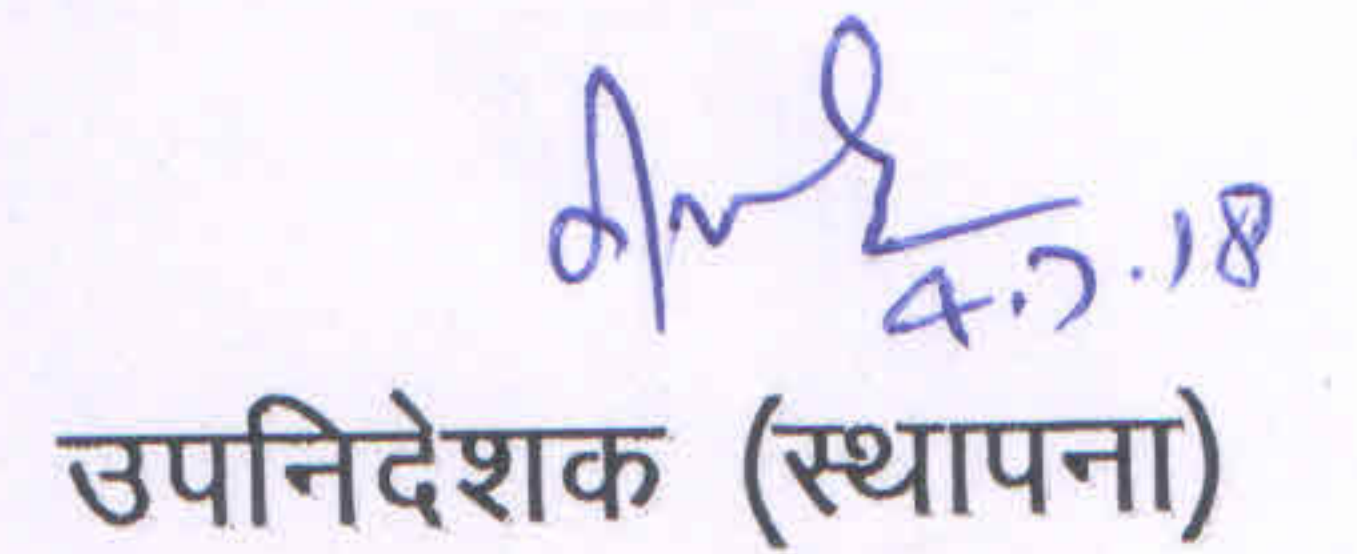 4.7.18
उपनिदेशक (स्थापना)